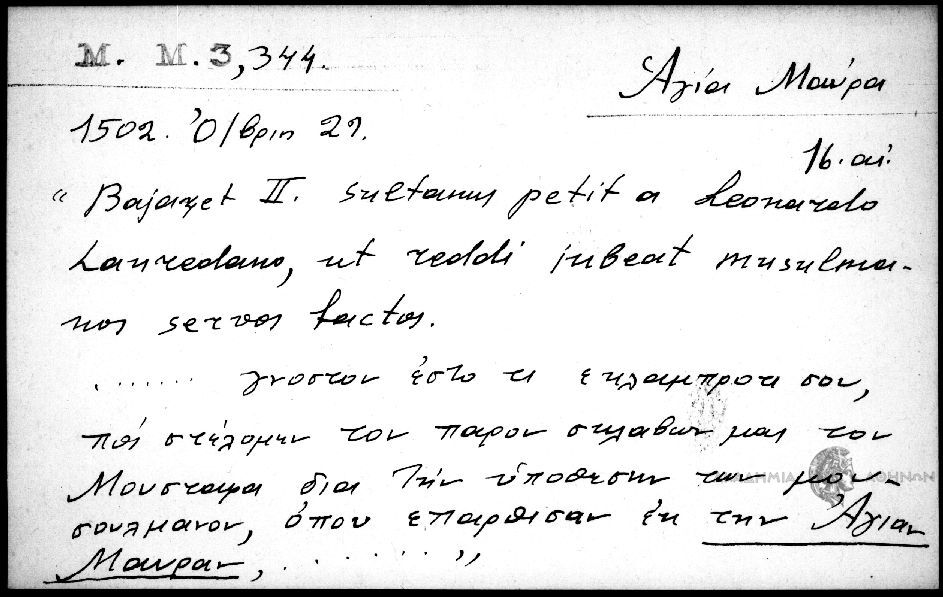 M. M. 3, 344.
Ἁγία Μαύρα
1502. Ὀ/βριη 22.
16. αἰ.
“ Bajazet II. sultanus petit a Leonardo
Lauredano, ut reddi jubeat musulma-
nos servos factos.
........ γνοστον ἐστο τι εκλαμπροτι σου,
πός στέλομεν τον παρον σκλαβων μας τον
Μουσταφα δια τὴν ὑπόθεσην των μου-
σουλμανον, ὁπου επαρθισαν ἐκ την Ἁγιαν
Μαυραν, ........ ”
ΑΚΑΔΗΜΙΑ ΑΘΗΝΩΝ